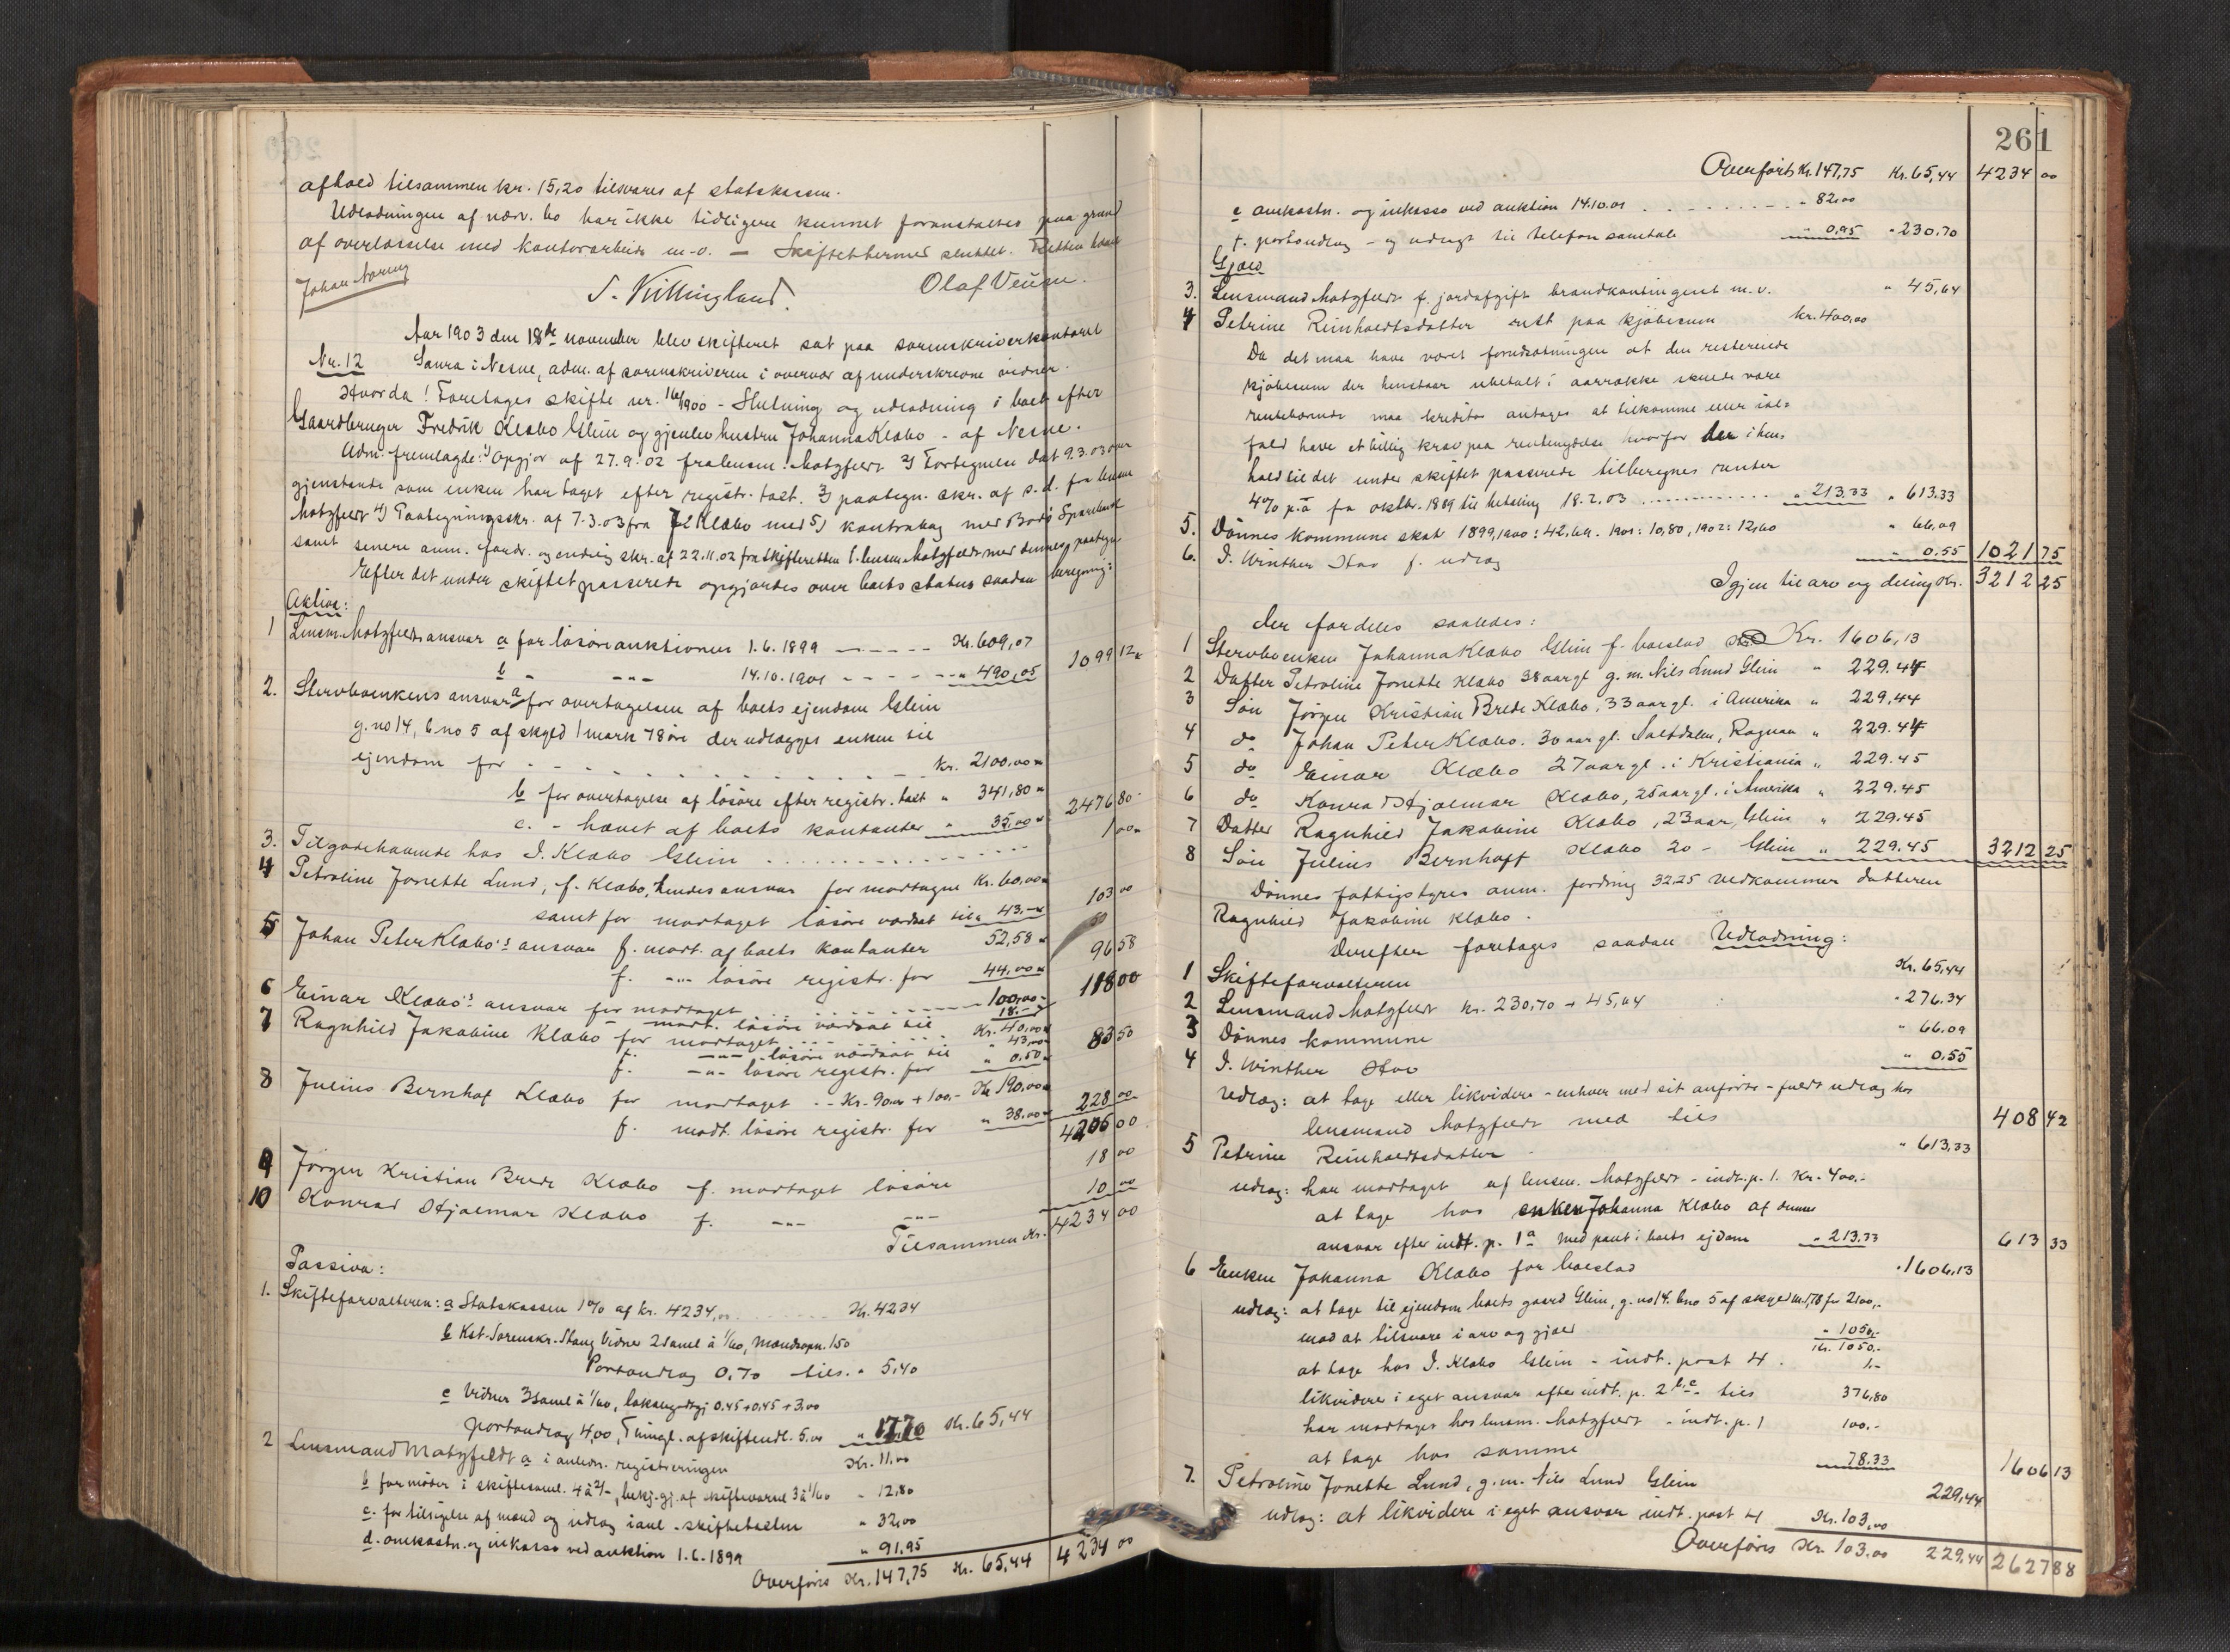 afhold tilsammen kr. 15,20 tilsvares af statskassen.
Udlodningen af nærv. bo har ikke tidligere kunnet foranstaltes paa grund
af overlæsselse med kontorarbeide m.v. — Skiftet hermed sluttet. Retten hævet
Johan Noring
S. Killingland.
Olaf
Aar 1903 den 18de november blev skifteret sat paa sorenskriverkontoret
Nr. 12 Saura i Nesne, adm. af sorenskriveren i overvær af underskrevne vidner.
Hvorda! Foretages skifte nr. 16/1900 - Slutning og udlodning i boet efter
Gaardbruger Fredrik Klæbo Glein og gjenlev. hustru Johanna Klæbo - af Nesne.
Adm. fremlagde: 1) Opgjør af 27.9.02 fra lensm. Motzfeldt 2) Fortegnelse dat 9.3.03 over
gjenstande som enken har taget efter registr. taxt. 3) paategn. skr. af s.d. fra lensm.
Motzfeldt 4) Paategningsskr. af 7.3.03 fra Klæbo med 5) kontrabog med Bodø Sparebank
samt senere anm. fordr. og endelig skr. af 22.11.02 fra skifteretten t. lensm. Motzfeldt med dennes paategn.
Efter det under skiftet passerede opgjordes over boets status saadan beregning:
Aktiva:
1 Lensm. Motzfeldts ansvar a for løsøreauktionen 1.6.1899 Kr. 609,07
b - -"- 14.10.1901 " 490,05 1099 12
2. Stervboenkens ansvar a for overtagelsen af boets eiendom Glein
g. no 14, b no 5 af skyld 1 mark 78 øre der udlægges enken til
eiendom for kr. 2100,00
b for overtagelse af løsøre efter registr. taxt " 341,80
c. - hævet af boets kontanter " 35,00 2476 80
3. Tilgodehavende hos I. Klæbo Glein 1 00
4 Petroline Jonette Lund, f. Klæbo, hendes ansvar for modtagne Kr. 60,00
samt for modtaget løsøre vurdert til " 43.- 103 00
5 Johan Peter Klæbo's ansvar f. modt. af boets kontanter 52,58
f. -"- løsøre registr. for 44,00 96 58
6 Einar Klæbo's ansvar for modtaget 100,00
- modt. løsøre vurdert til 18.- 118 00
7 Ragnhild Jakobine Klæbo for modtaget Kr. 40,00
f. -"- løsøre vurdert til " 43,00
f. -"- løsøre registr. for " 0.50 83 50
8 Julius Bernhof Klæbo for modtaget -- Kr. 90,00 + 100,- Kr 190,00
f. modt. løsøre registr. for " 38,00 228 00
4206 00
9 Jørgen Kristian Brede Klæbo f. modtaget løsøre 18 00
10 Konrad Hjalmar Klæbo f. -"- -"- 10 00
Tilsammen Kr. 4234 00
Passiva:
1. Skifteforvalteren: a Statskassen 1% af kr. 4234,00 Kr. 42 34
b Kst. Sorenskr. Stang Vidner 2 saml à 1/60, Mandsopn. 1.50
Portoudlæg 0,70 tils. " 5,40
c Vidner 3 saml à 1/60, lokalgodtgj 0.45 + 0.45 + 3,00
portoudlæg 4,00, Thingl. af skifteudl. 5,00 " 17.70 Kr. 65,44
2 Lensmand Motzfeldt a i anledn. registreringen Kr. 11.00
b for møder i skiftesaml. 4 à 2/-, bekj.gj. af skiftevarsel 3 à 1/60 " 12,80
c. for tilsigelse af mænd og udlæg i anl. skiftetaxten " 32,00
d. omkostn. og inkasso ved auktion 1.6.1899 " 91,95
Overføres Kr. 147,75 Kr. 65,44 4234 00
261
Overført Kr. 147,75 Kr. 65,44 4234 00
e omkostn. og inkasso ved auktion 14.10.01 " 82,00
f. portoudlæg - og udlagt til telefonsamtale " 0,95 " 230,70
Gjæld
3. Lensmand Motzfeldt f. jordafgift brandkontingent m.v. " 45,64
4 Petrine Reinholdtsdatter rest paa kjøbesum kr. 400,00
Da det maa have været forudsætningen at den resterende
kjøbesum der henstaar ubetalt i aarrække skulde være
rentebærende maa kreditor antages at tilkomme eller ial-
fald have et billig krav paa rentenydelse hvorfor der i hen-
hold til det under skiftet passerede tilberegnes renter
4% p.a fra oktbr. 1889 til betaling 18.2.03 " 213.33 " 613.33
5. Dønnes kommune skat 1899, 1900: 42,69. 1901: 10,80, 1902: 12,60 " 66,09
6. I. Winther Hov f. udlæg " 0.55 1021 75
Igjen til arv og deling Kr. 3212 25
der fordeles saaledes:
1 Stervboenken Johanna Klæbo Glein f. boeslod Kr. 1606,13
2 Datter Petroline Jonette Klæbo 38 aar gl g.m. Nils Lund Glein " 229.44
3 Søn Jørgen Kristian Brede Klæbo, 33 aar gl. i Amerika " 229,44
4 do Johan Peter Klæbo. 30 aar gl. Saltdalen, Rognan " 229.44
5 do Einar Klæbo 27 aar gl. i Kristiania " 229.45
6 do Konrad Hjalmar Klæbo, 25 aar gl. i Amerika " 229.45
7 Datter Ragnhild Jakobine Klæbo, 23 aar, Glein " 229.45
8 Søn Julius Bernhoft Klæbo 20 - Glein " 229.45 3212 25
Dønnes fattigstyres anm. fordring 32.25 vedkommer datteren
Ragnhild Jakobine Klæbo.
Derefter foretages saadan Udlodning:
1 Skifteforvalteren Kr. 65,44
2 Lensmand Motzfeldt kr. 230,70 + 45,64 " 276.34
3 Dønnes kommune " 66.09
4 I. Winther Hov " 0.55
Udlæg: at tage eller likvidere - enhver med sit anførte - fuldt udlæg hos
lensmand Motzfeldt med tils 408 42
5 Petrine Reinholdtsdatter " 613,33
udlæg: har modtaget af lensm. Motzfeldt - indt. p. 1. Kr. 400.-
at tage hos enken Johanna Klæbo af dennes
ansvar efter indt. p. 1a med pant i boets ejdom " 213.33 613 33
6 Enken Johanna Klæbo for boeslod " 1606,13
udlæg: at tage til ejendom boets gaard Glein, g. no 14. b no 5 af skyld m. 1,78 for 2100,-
mod at tilsvare i arv og gjæld " 1050,-
Kr. 1050.-
at tage hos I. Klæbo Glein - indt. post 4. 1.-
likvidere i eget ansvar efter indt. p. 2 b.c. tils 376,80
har modtaget hos lensm. Motzfeldt - indt. p. 1 100.-
at tage hos samme 78.33 1606 13
7. Petroline Jonette Lund, g.m. Nils Lund Glein 229,44
udlæg: at likvidere i eget ansvar indt. post 4 Kr. 103,00
Overføres Kr. 103.00 229,44 2627 88